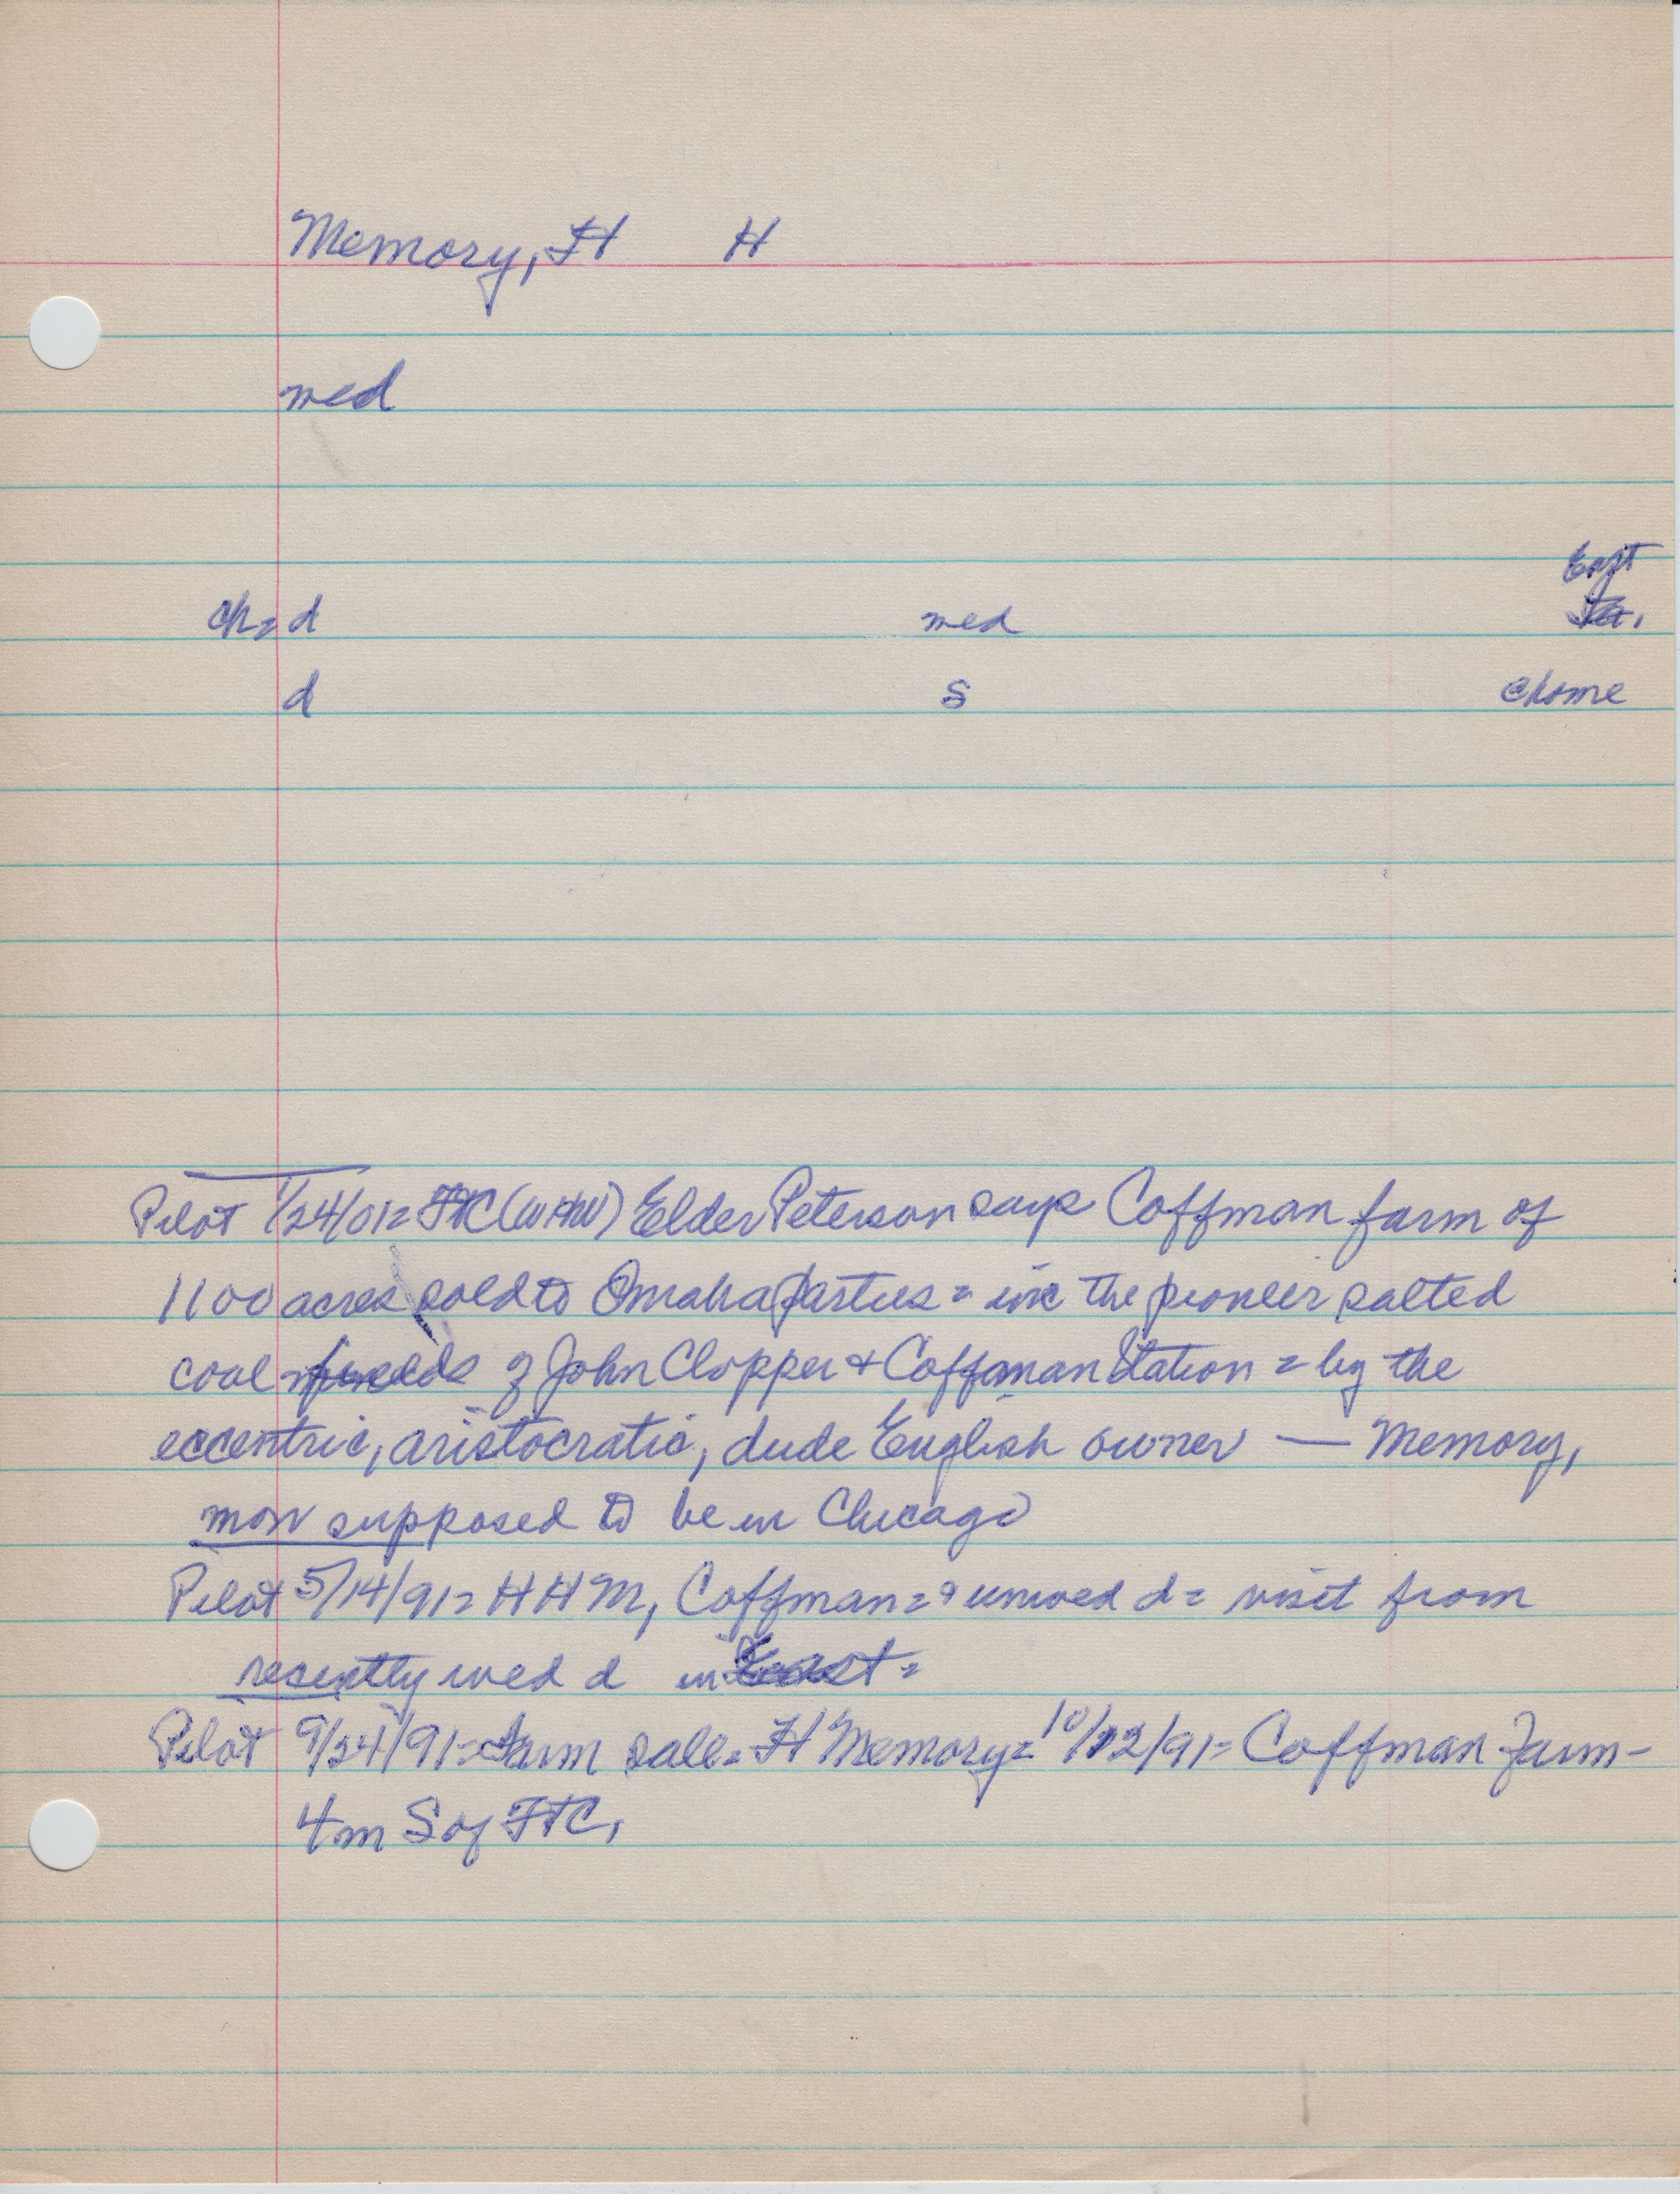 Memory, H H
med
East
ch= d med
d s @home
Pilot 1/24/01= FtC (WHW) Elder Peterson says Coffman farm of
1100 acres sold to Omaha parties = inc the pioneer salted
coal fields of John Clopper & Coffman Station = by the
eccentric, aristocratic, dude English owner — Memory,
now supposed to be in Chicago
Pilot 5/14/91= H H M, Coffman = unwed d= visit from
recently wed d in East=
Pilot 9/24/91= Farm sale= H Memory= 10/12/91= Coffman Farm-
4m S of FTC,